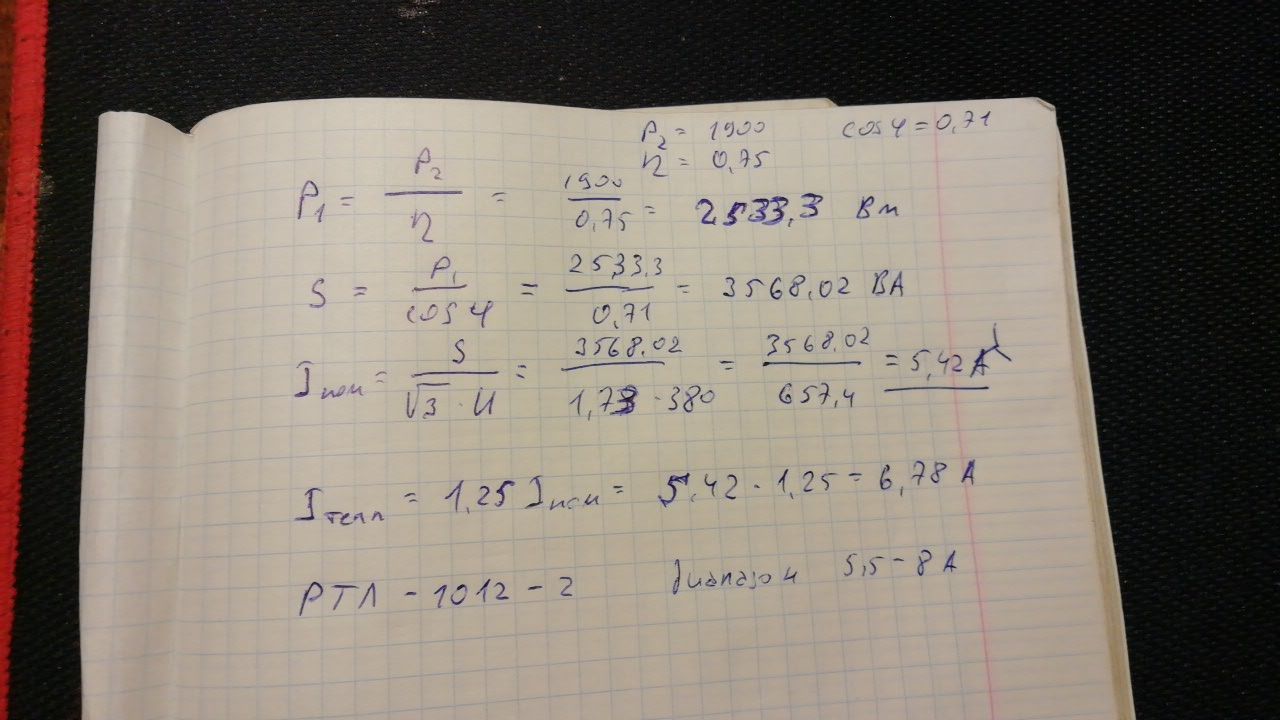 P₂ = 1900 cos φ = 0,71
η = 0,75
P₁ = P₂ / η = 1900 / 0,75 = 2533,3 Вт
S = P₁ / cos φ = 2533,3 / 0,71 = 3568,02 ВА
Iном = S / √3 · U = 3568,02 / 1,73 · 380 = 3568,02 / 657,4 = 5,42 А
Iтепл = 1,25 Iном = 5,42 · 1,25 = 6,78 А
РТЛ - 1012 - 2 Диапазон 5,5 - 8 А